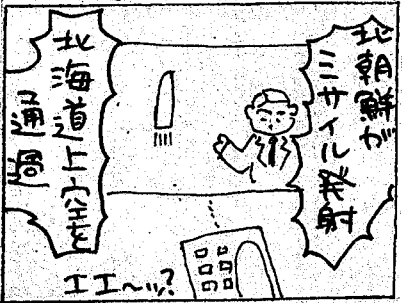 北朝鮮が
ミサイル発射
北海道上空を
通過
エエ～ッ?